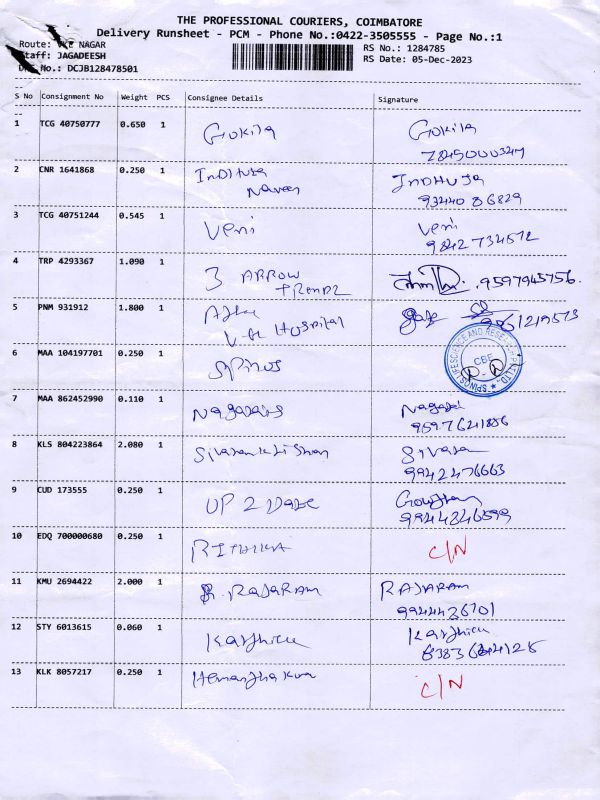 THE PROFESSIONAL COURIERS, COIMBATORE
Delivery Runsheet - PCM - Phone No.:0422-3505555 - Page No.:1
Route: NAGAR
Staff: JAGADEESH
No.: DCJB128478501
RS No.: 1284785
RS Date: 05-Dec-2023
S No Consignment No Weight PCS Consignee Details Signature
1 TCG 40750777 0.650 1 Gokila Gokila
2 CNR 1641868 0.250 1 INDHUJA INDHUJA
Naveen 9344086829
3 TCG 40751244 0.545 1 Veni Veni
9842734572
4 TRP 4293367 1.090 1 3 ARROW 9597945756.
TRENDZ
5 PNM 931912 1.800 1
Hospital
6 MAA 104197701 0.250 1 SPINOS
SPINOS LIFESCIENCE AND RESEARCH PVT LTD.,
CBE
7 MAA 862452990 0.110 1 Nagaraj
8 KLS 804223864 2.080 1 Sivasankar
9942476663
9 CUD 173555 0.250 1 UP 2 Date Gowtham
9944346599
10 EDQ 700000680 0.250 1 RITHIKA C/N
11 KMU 2694422 2.000 1 R. RAJARAM RAJARAM
9944436701
12 STY 6013615 0.060 1 Karthick Karthick
13 KLK 8057217 0.250 1 C/N